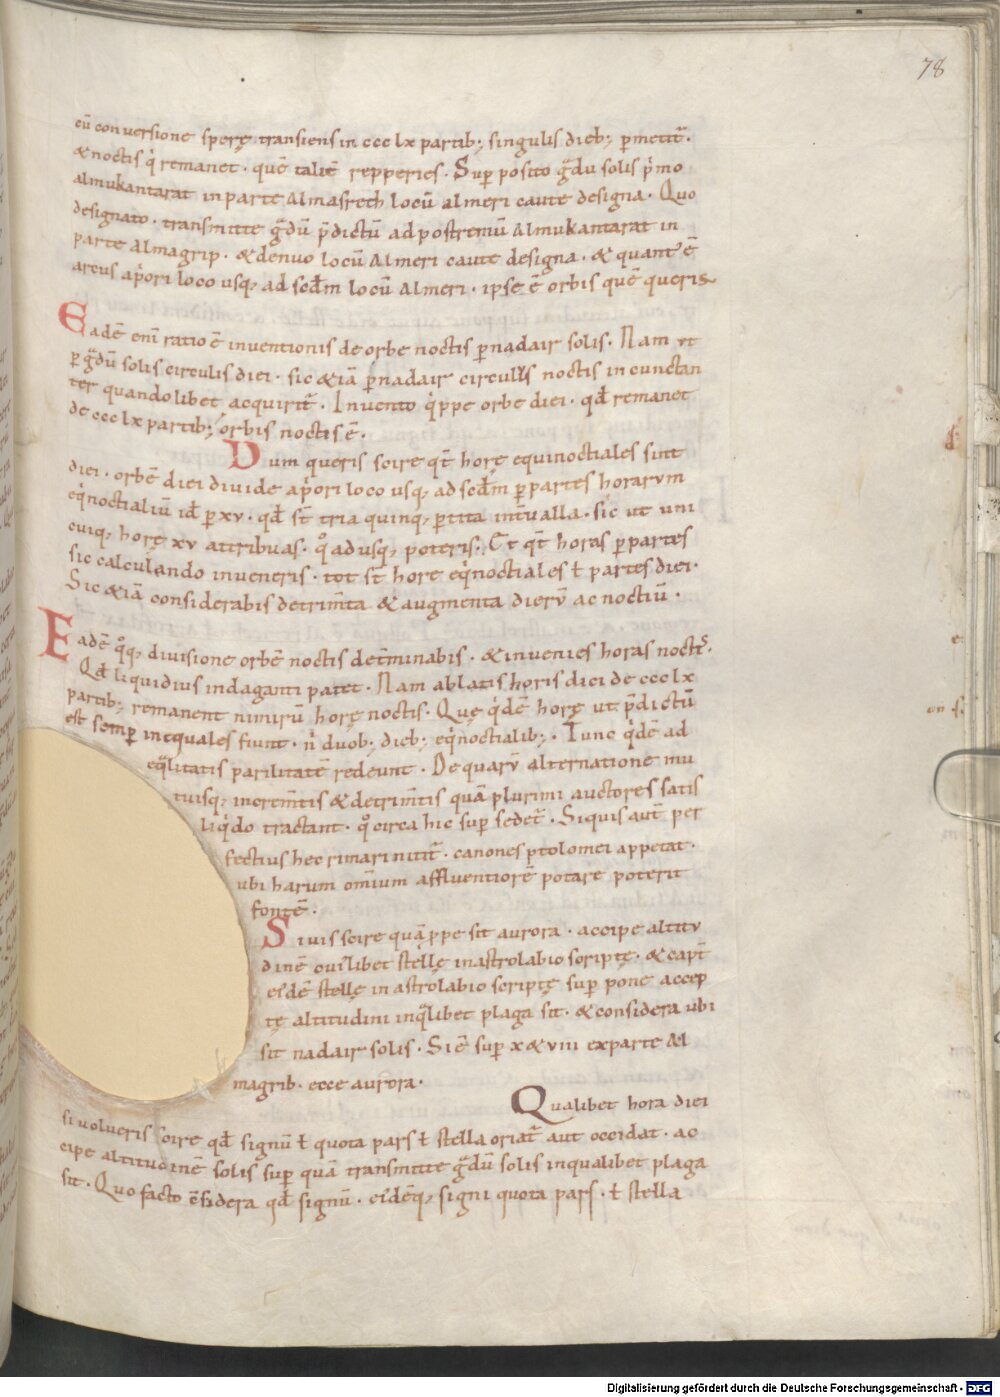 78
cū conuersione sperę transiens in ccc lx partib; singulis dieb; ꝑmetit̄.
& noctis q̍ remanet. quē taliē repperies. Suꝑ posito g̃du solis p̍mo
almukantarat in parte Almasrech locū almeri caute designa. Quo
designato. transmitte g̃dū p̄dictū ad postremū Almukantarat in
parte Almagrip. & denuo locū Almeri caute designa. & quant᾽ ē
arcus ap̍ori loco usq, ad sc̄dm locū Almeri. ipse ē orbis quē queris
Eadē eni ratio ē inuentionis de orbe noctis ꝑ nadair solis. Nam ut
ꝑ g̃dū solis circulis diei. sic & iā ꝑ nadair circulis noctis in cunctan
ter quandolibet acquirit̄. Inuento q̍ppe orbe diei. qd̄ remanet
de ccc lx partib; orbis noctis ē.
Dum queris scire qt̄ horę equinoctiales sunt
diei. orbē diei diuide ap̍ori loco usq, ad sc̄dm ꝑ partes horarum
eq̍noctialiū id̄ ꝑ xv. qd̄ st̄ tria quinq, ꝑtita int̄ualla. sic ut uni
cuiq, horę xv attribuas. q̊ adusq, poteris. Et qt̄ horas ꝑ partes
sic calculando inueneris. tot st̄ hore eq̍noctiales ł partes diei.
Sic & iā considerabis detrim̄ta & augmenta dierū ac noctiū.
Eadē q̊q, diuisione orbē noctis det̄minabis. & inuenies horas noctꝭ.
Qd̄ liquidius indaganti patet. Nam ablatis horis diei de ccc lx
partib; remanent nimirū horę noctis. Quę q̍dē horę ut p̄dictū
est semꝑ inequales fiunt. n̍ duob; dieb; eq̍noctialib;. Tunc q̍dē ad
eq̄litatis parilitatē redeunt. De quarū alternatione mu
tuisq, increm̄tis & detrim̄tis quā plurimi auctores satis
liq̍do tractant. q̊ circa hic suꝑ sedet̄. Siquis aut̄ per
fectius hec rimari nitit̄. canones ptolomei appetat.
ubi harum om̄ium affluentiorē potare poterit
fontē.
Siuis scire quā ꝓpe sit aurora. accipe altitu
dinē cui᾽libet stellę in astrolabio scriptę. & capt̄
ei᾽dē stellę in astrolabio scriptę suꝑ pone accep
tę altitudini in q̄libet plaga sit. & considera ubi
sit nadair solis. Si ē suꝑ x & viii ex parte Al
magrib. ecce aurora.
Qualibet hora diei
si uolueris scire qd̄ signū ł quota pars ł stella oriat̄ aut occidat. ac
cipe altitudinē solis suꝑ quā transmitte g̃dū solis in qualibet plaga
sit. Quo facto c̄sidera qd̄ signū. ei᾽dēq, signi quota pars. ł stella
Digitalisierung gefördert durch die Deutsche Forschungsgemeinschaft - DFG